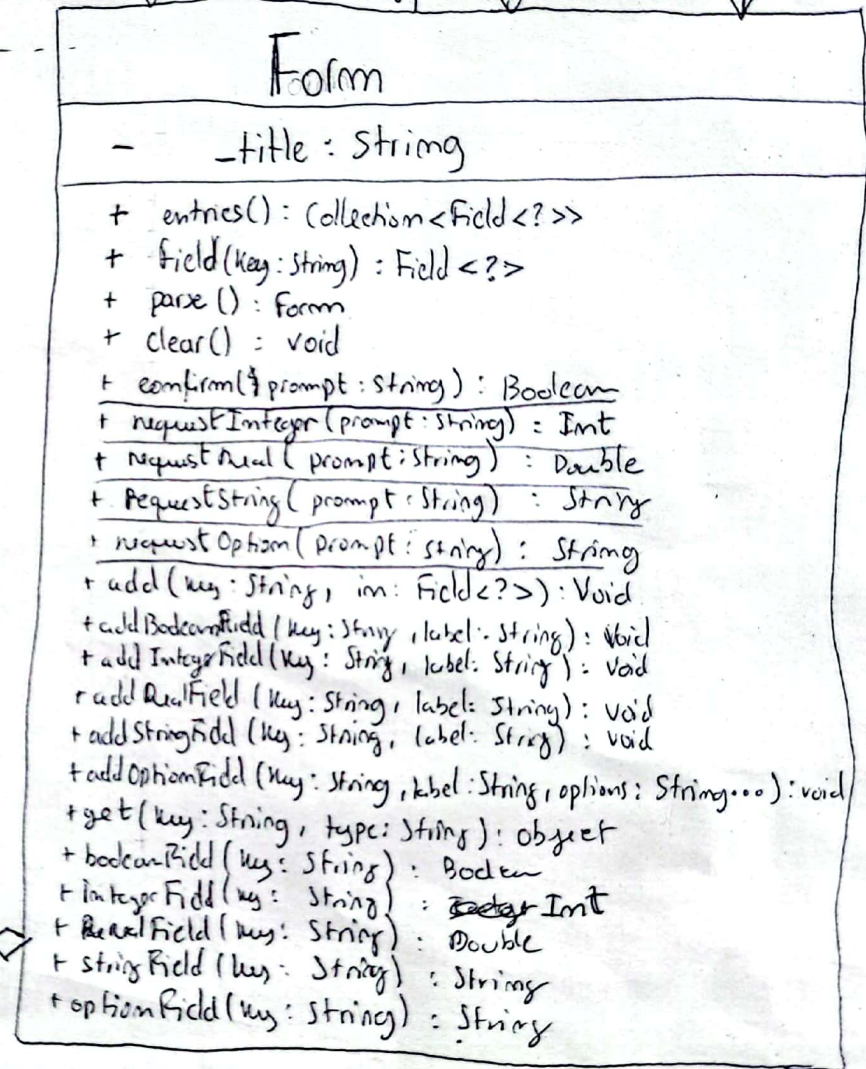 Form
- _title : String
+ entries() : Collection<Field<?>>
+ field(key : String) : Field <?>
+ parse () : Form
+ clear() : void
+ confirm(prompt : String) : Boolean
+ requestInteger (prompt : String) : Int
+ requestReal ( prompt : String) : Double
+ RequestString( prompt : String) : String
+ requestOption( prompt : String) : String
+ add (key : String, in : Field<?>) : Void
+ addBooleanField (key : String , label : String) : Void
+ add IntegerField (key : String, label : String ) : Void
+ addRealField (key : String, label : String) : void
+ addStringField (key : String, label : String) : void
+ addOptionField (key : String , label : String, options : String...) : void
+ get (key : String, type : String) : object
+ booleanField (key : String) : Boolean
+ integerField (key : String) : Int
+ RealField (key : String) : Double
+ stringField (key : String) : String
+ optionField (key : String) : String